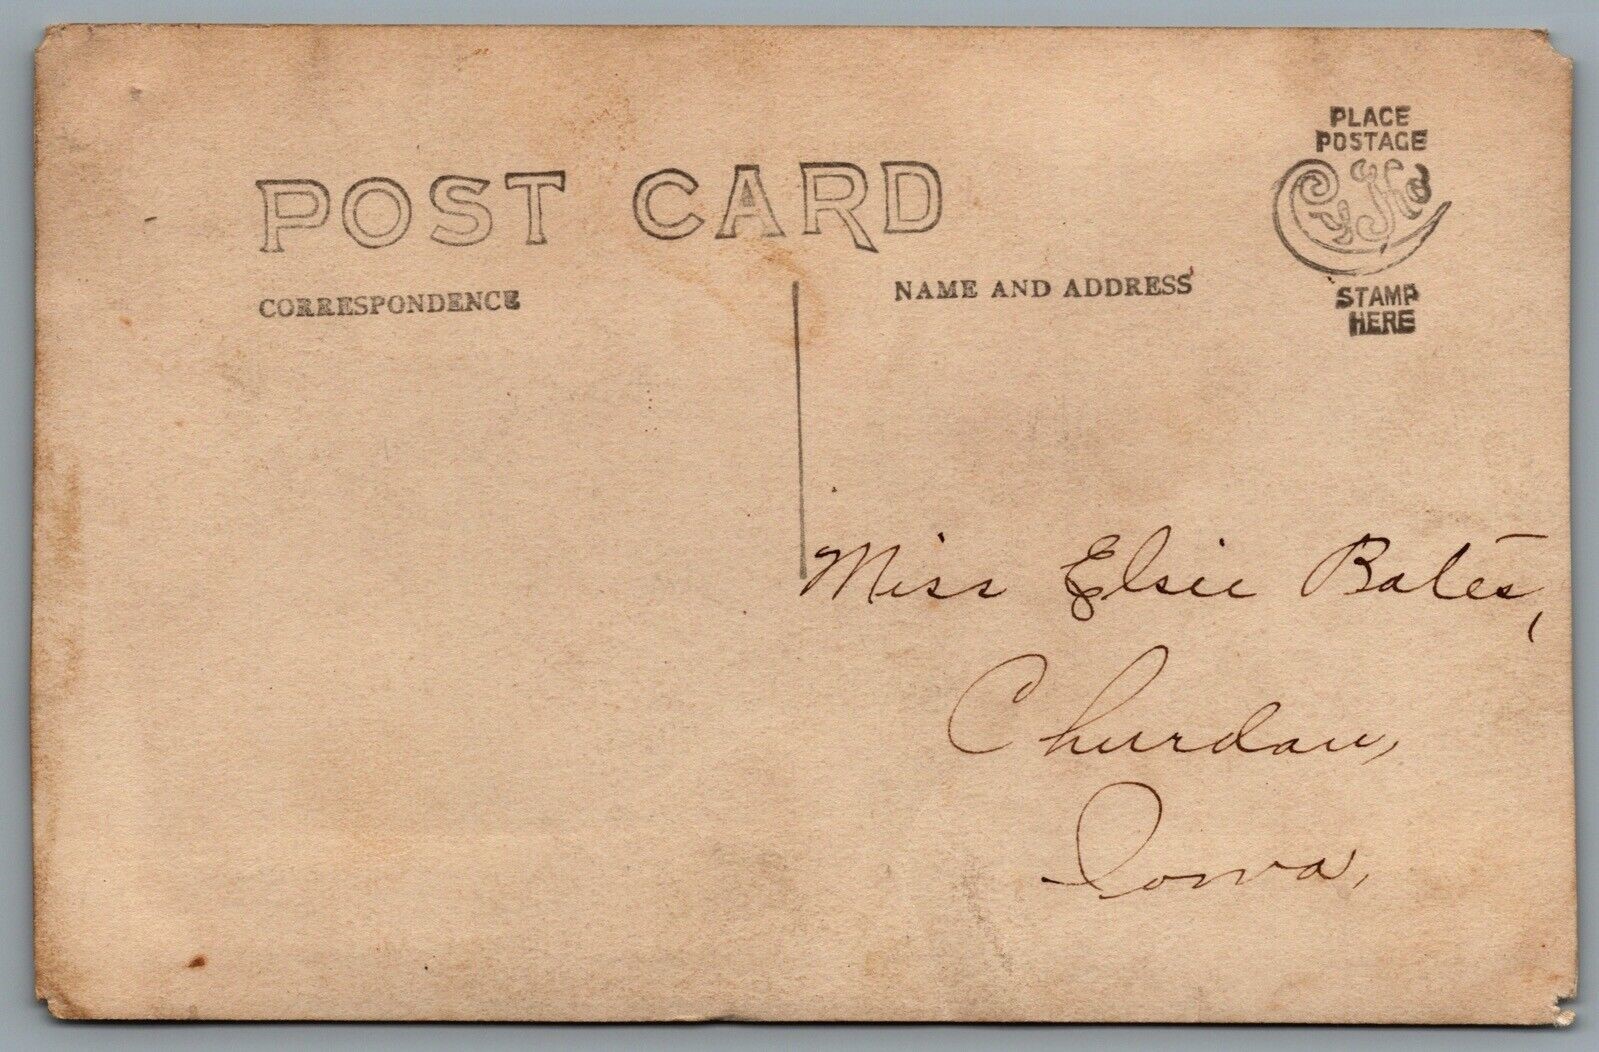 POST CARD
CORRESPONDENCE
NAME AND ADDRESS
PLACE
POSTAGE
CyKo
STAMP
HERE
Miss Elsie Bates,
Churdan,
Iowa,